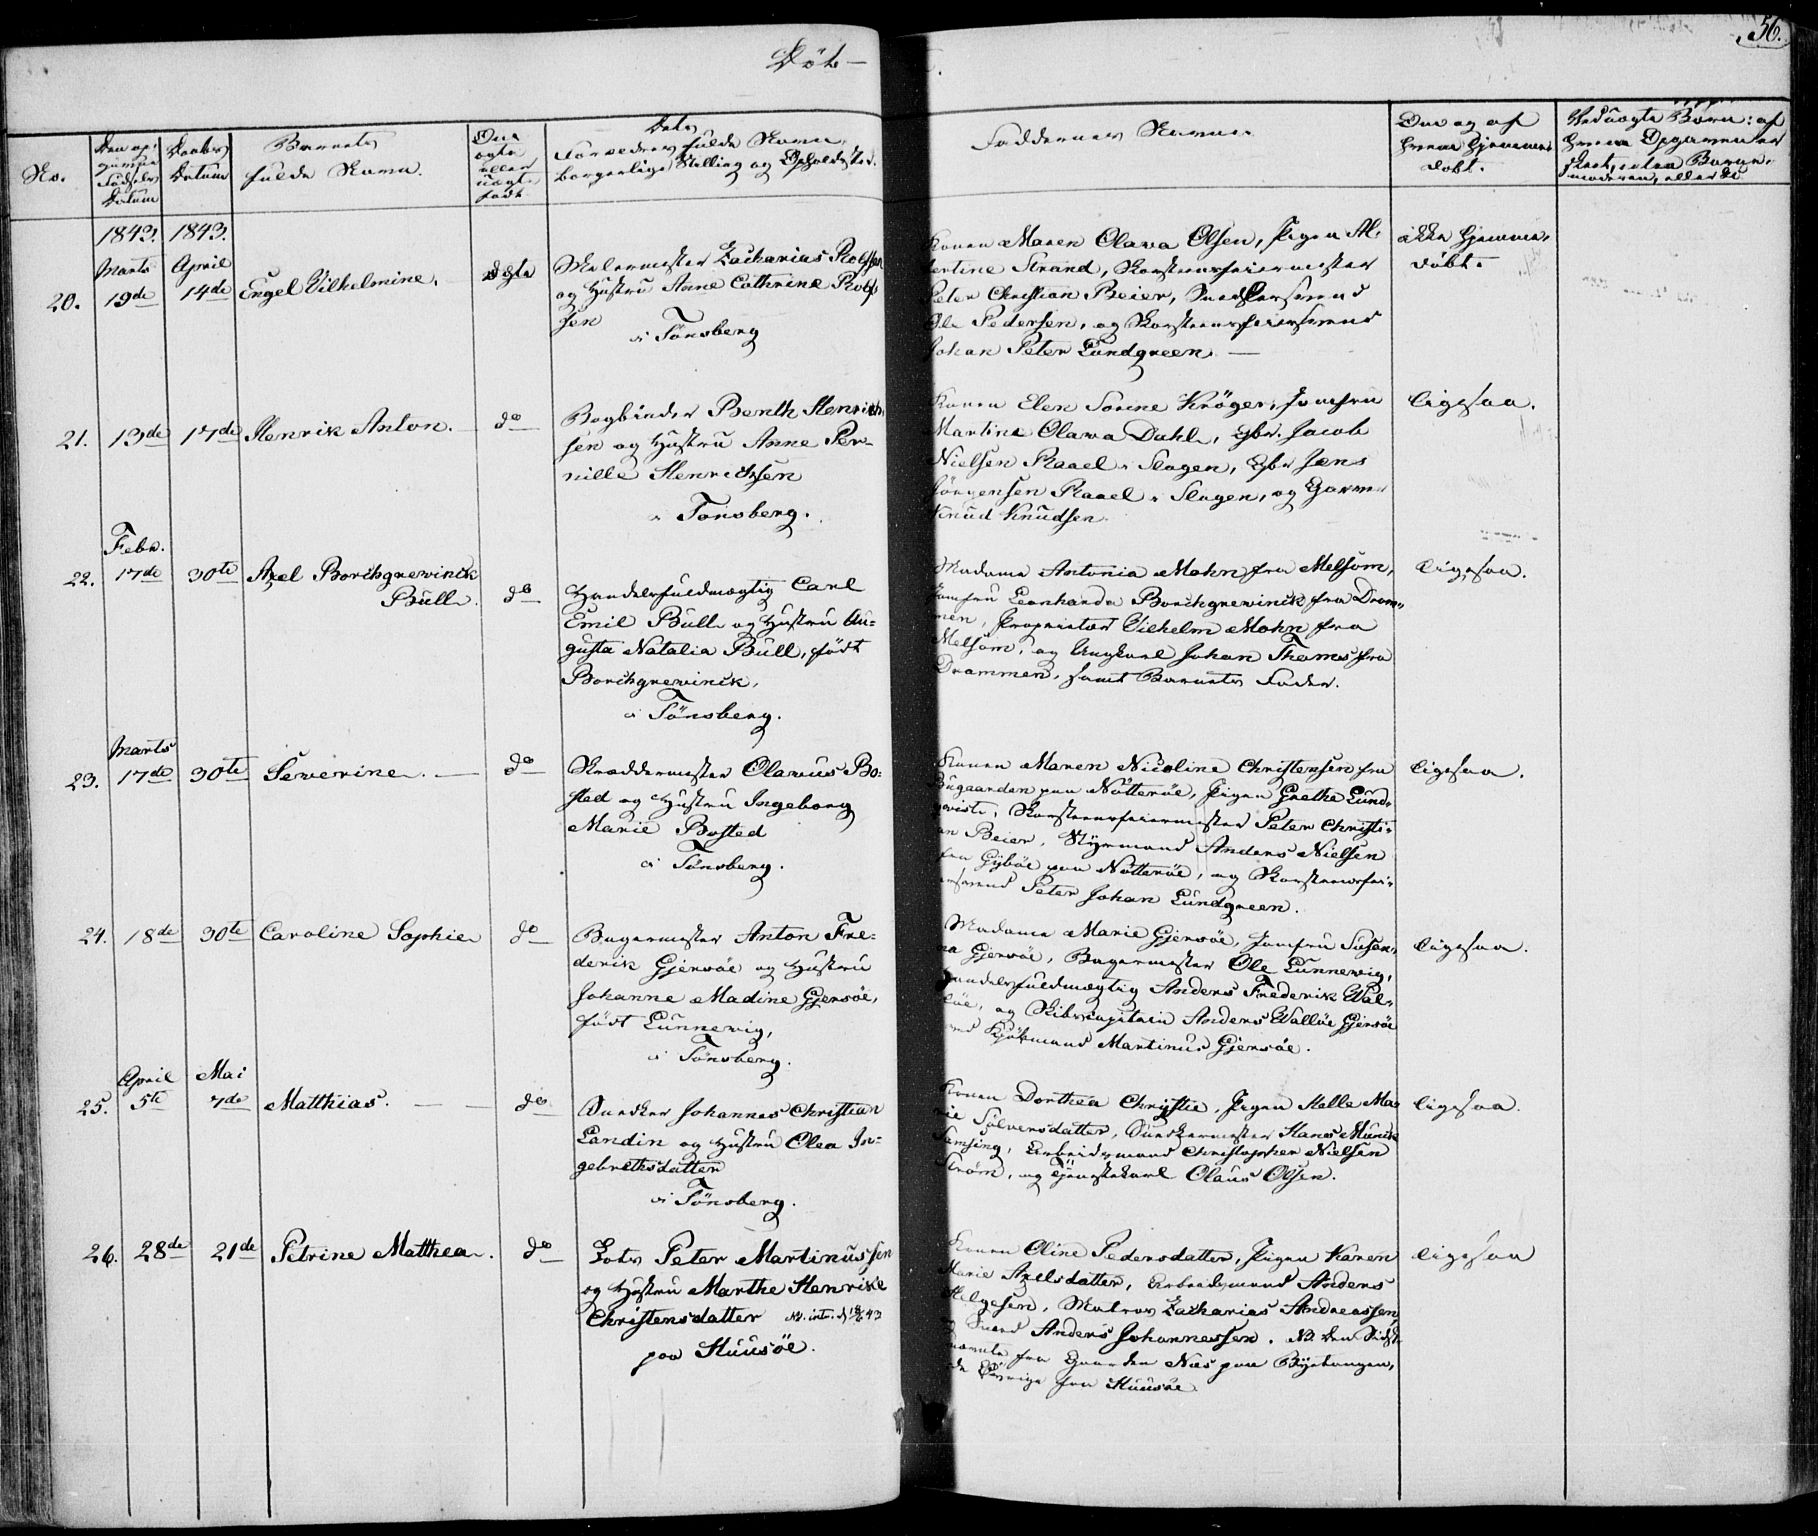 56.
Døbte
No.
Den op-
givne
Fødsels
Datum
Daabs
Datum
Barnets
fulde Navn.
Om
ægte
eller
uægte
født
Dets
Forældres fulde Navne,
borgerlige Stilling og Opholdssted.
Faddernes Navne.
Om og af
hvem hjemme-
døbt.
Ved uægte Børn: af
hvem Opgaven er
skeet, uden Barne-
moderen, eller de
1843. 1843.
20. Marts 19de April 14de Engel Vilhelmine. ægte
Malermester Zacharias Rolfsen
og Hustru Anne Cathrine Rolf-
sen
i Tönsberg
Konen Maren Olava Olsen, Pigen Al-
bertine Strand, Skorsteensfeiermester
Peter Christian Beier, Snedkersvend
Ole Pedersen, og Skorsteensfeiersvend
Johan Peter Lundgreen. —
ikke hjemme-
døbt.
21. 13de 17de Henrik Anton. do
Bogbinder Benth Henrich-
sen og Hustru Anne Per-
nille Henrichsen
i Tönsberg.
Konen Elen Sorine Kröger, Jomfru
Martine Olava Dahl, Gbr. Jacob
Nielsen Raael i Slagen, Gbr Jens
Jörgensen Raael i Slagen, og Garver
Knud Knudsen.
ligesaa.
22. Febr. 17de 30te Axel Borchgrewinck
Bull. do
Handelsfuldmægtig Carl
Emil Bull og Hustru Au-
gusta Natalia Bull, født
Borchgrewinck,
i Tönsberg.
Madame Antonia Mohn fra Melsom,
Jomfru Leonharda Borchgrewinck fra Dram-
men, Proprietær Vilhelm Mohn fra
Melsom, og Ungkarl Johan Thams fra
Drammen, samt Barnets Fader.
ligesaa.
23. Marts 17de 30te Severine. — do
Skræddermester Olavus Bo-
sted og Hustru Ingeborg
Marie Bosted
i Tönsberg.
Konen Maren Nicoline Christensen fra
Bugaarden paa Nötteröe, Pigen Grethe Lund-
qviste, Skorsteensfeiermester Peter Christi-
an Beier, Styrmand Anders Nielsen
fra Gyböe paa Nötteröe, og Skorsteensfei-
ersvend Peter Johan Lundgreen.
ligesaa.
24. 18de 30te Caroline Sophie do
Bagermester Anton Fre-
derik Gjersöe og Hustru
Johanne Madine Gjersöe,
født Lunnewig,
i Tönsberg.
Madame Marie Gjersöe, Jomfru Susan-
na Gjersöe, Bagermester Ole Lunnewig,
Handelsfuldmægtig Anders Frederik Wal-
löe, og Skibscapitain Anders Wallöe Gjersöe
Kjöbmand Martinus Gjersöe.
ligesaa.
25. April 5te Mai 7de Matthias. — — do
Snedker Johannes Christian
Landin og Hustru Olea In-
gebrethsdatter
i Tönsberg.
Konen Dorthea Christie, Pigen Helle Ma-
rie Sölversdatter, Snedkermester Hans Munck
Samsing, Arbeidsmand Christopher Nielsen
Ström, og Tjenestekarl Olaus Olsen.
ligesaa.
26. 28de 21de Petrine Matthea. do
Lods Peter Martinussen
og Hustru Marthe Henrike
Christensdatter
paa Huusöe.
Konen Oline Pedersdatter, Pigen Karen
Marie Axelsdatter, Arbeidsmand Anders
Helgesen, Matros Zacharias Andreassen,
Anders Johannessen. NB. den Sidst-
nævnte fra Gaarden Næs paa
de Øvrige fra Huusöe.
ligesaa